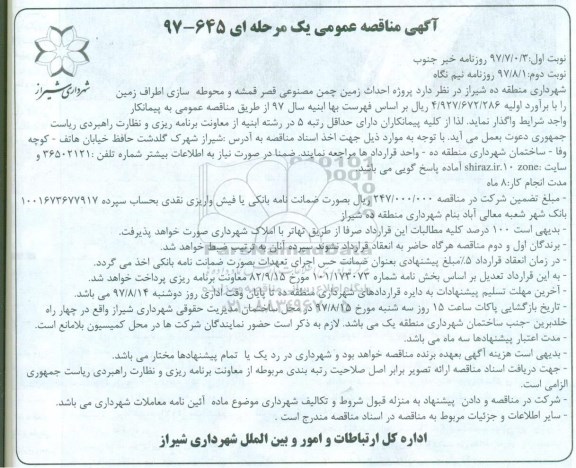 آگهی مناقصه عمومی یک مرحله ای ۶۴۵-۹۷
شهرداری شیراز
نوبت اول:۹۷/۷/۰۳ روزنامه خبر جنوب
نوبت دوم:۹۷/۸/۱ روزنامه نیم نگاه
شهرداری منطقه ده شیراز در نظر دارد پروژه احداث زمین چمن مصنوعی قصر قمشه و محوطه سازی اطراف زمین
را با برآورد اولیه ۴/۹۲۷/۶۷۲/۲۸۶ ریال بر اساس فهرست بها ابنیه سال ۹۷ از طریق مناقصه عمومی به پیمانکار
واجد شرایط واگذار نماید. لذا از کلیه پیمانکاران دارای حداقل رتبه ۵ در رشته ابنیه از معاونت برنامه ریزی و نظارت راهبردی ریاست
جمهوری دعوت بعمل می آید. با توجه به موارد ذیل جهت اخذ اسناد مناقصه به آدرس :شیراز شهرک گلدشت حافظ خیابان هاتف - کوچه
وفا - ساختمان شهرداری منطقه ده - واحد قرارداد ها مراجعه نمایند. ضمنا در صورت نیاز به اطلاعات بیشتر شماره تلفن :۳۶۵۰۲۱۲۱ و
سایت :shiraz.ir.۱۰ zone آماده پاسخ گویی می باشد.
مدت انجام کار:۸ ماه
- مبلغ تضمین شرکت در مناقصه ۲۴۷/۰۰۰/۰۰۰ ریال بصورت ضمانت نامه بانکی یا فیش واریزی نقدی بحساب سپرده ۱۰۰۱۶۷۳۶۷۷۹۱۷
بانک شهر شعبه معالی آباد بنام شهرداری منطقه ده شیراز
- بدیهی است ۱۰۰ درصد کلیه مطالبات این قرارداد صرفا از طریق تهاتر با املاک شهرداری صورت خواهد پذیرفت.
- برندگان اول و دوم مناقصه هرگاه حاضر به انعقاد قرارداد نشوند سپرده آنان به ترتیب ضبط خواهد شد.
- در زمان انعقاد قرارداد ۵٪مبلغ پیشنهادی بعنوان ضمانت حسن اجرای تعهدات بصورت ضمانت نامه بانکی اخذ می گردد.
- به این قرارداد تعدیل بر اساس بخش نامه شماره ۱۰۱/۱۷۳۰۷۳ مورخ ۸۲/۹/۱۵ معاونت برنامه ریزی پرداخت خواهد شد.
- آخرین مهلت تسلیم پیشنهادات به دایره قراردادهای شهرداری منطقه ده تا پایان وقت اداری روز دوشنبه ۹۷/۸/۱۴ می باشد.
- تاریخ بازگشایی پاکات ساعت ۱۵ روز سه شنبه مورخ ۹۷/۸/۱۵ در محل ساختمان مدیریت حقوقی شهرداری شیراز واقع در چهار راه
خلدبرین -جنب ساختمان شهرداری منطقه یک می باشد. لازم به ذکر است حضور نمایندگان شرکت ها در محل کمیسیون بلامانع است.
- مدت اعتبار پیشنهادها سه ماه می باشد.
- بدیهی است هزینه آگهی بعهده برنده مناقصه خواهد بود و شهرداری در رد یک یا تمام پیشنهادها مختار می باشد.
- جهت دریافت اسناد مناقصه ارائه تصویر برابر اصل صلاحیت رتبه بندی مربوطه از معاونت برنامه ریزی و نظارت راهبردی ریاست جمهوری
الزامی است.
- شرکت در مناقصه و دادن پیشنهاد به منزله قبول شروط و تکالیف شهرداری موضوع ماده آئین نامه معاملات شهرداری می باشد.
- سایر اطلاعات و جزئیات مربوط به مناقصه در اسناد مناقصه مندرج است .
اداره کل ارتباطات و امور و بین الملل شهرداری شیراز